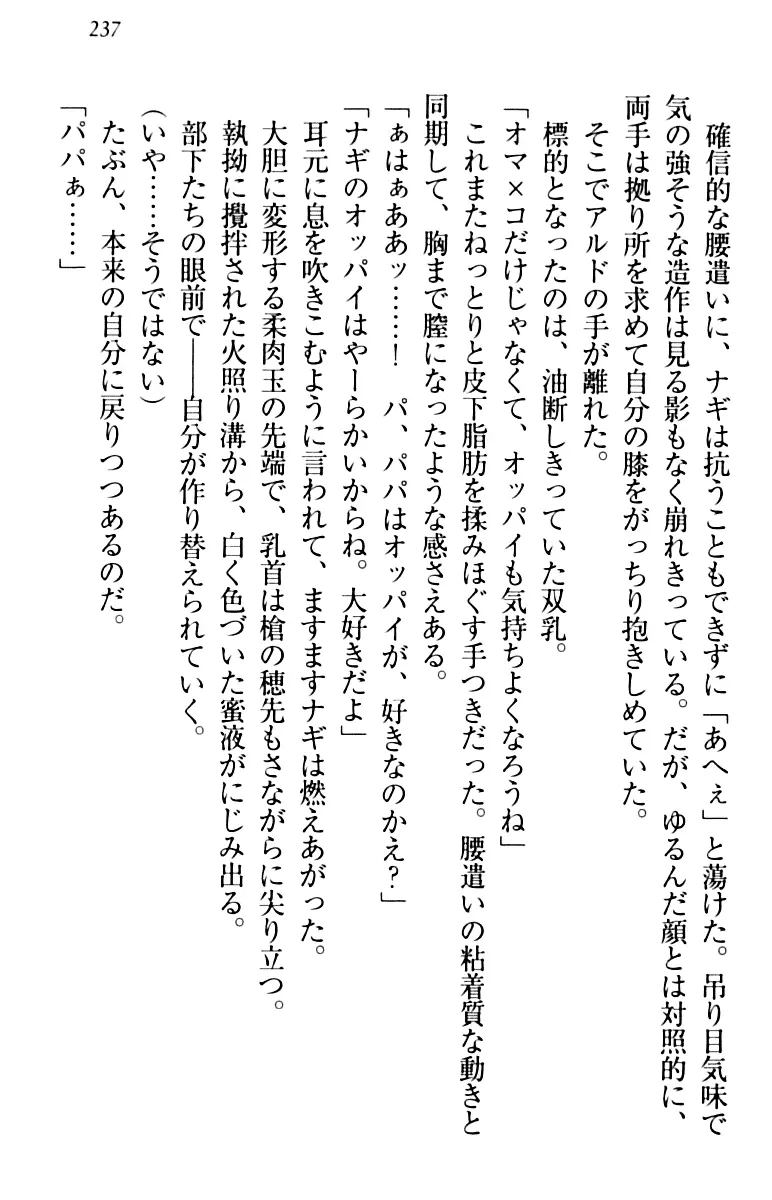 237
確信的な腰遣いに、ナギは抗うこともできずに「あへぇ」と蕩けた。吊り目気味で
気の強そうな造作は見る影もなく崩れきっている。だが、ゆるんだ顔とは対照的に、
両手は拠り所を求めて自分の膝をがっちり抱きしめていた。
そこでアルドの手が離れた。
標的となったのは、油断しきっていた双乳。
「オマ×コだけじゃなくて、オッパイも気持ちよくなろうね」
これまたねっとりと皮下脂肪を揉みほぐす手つきだった。腰遣いの粘着質な動きと
同期して、胸まで膣になったような感さえある。
「ぁはぁああッ……！　パ、パパはオッパイが、好きなのかえ？」
「ナギのオッパイはやーらかいからね。大好きだよ」
耳元に息を吹きこむように言われて、ますますナギは燃えあがった。
大胆に変形する柔肉玉の先端で、乳首は槍の穂先もさながらに尖り立つ。
執拗に攪拌された火照り溝から、白く色づいた蜜液がにじみ出る。
部下たちの眼前で――自分が作り替えられていく。
（いや……そうではない）
たぶん、本来の自分に戻りつつあるのだ。
「パパぁ……」